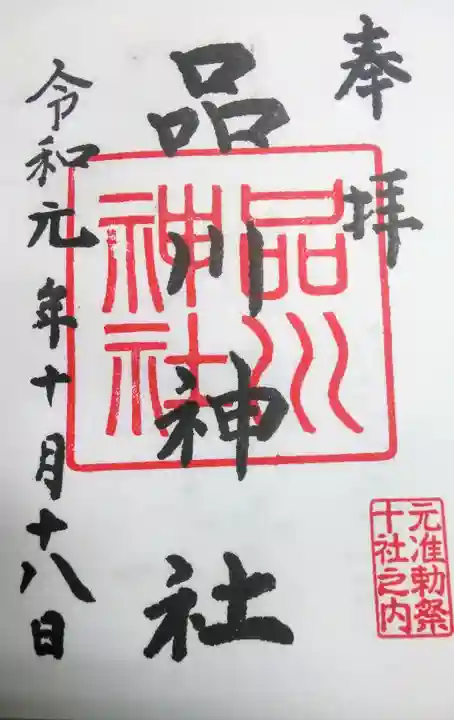 奉拝
品川神社
品川
神社
元准勅祭
十社之内
令和元年十月十八日